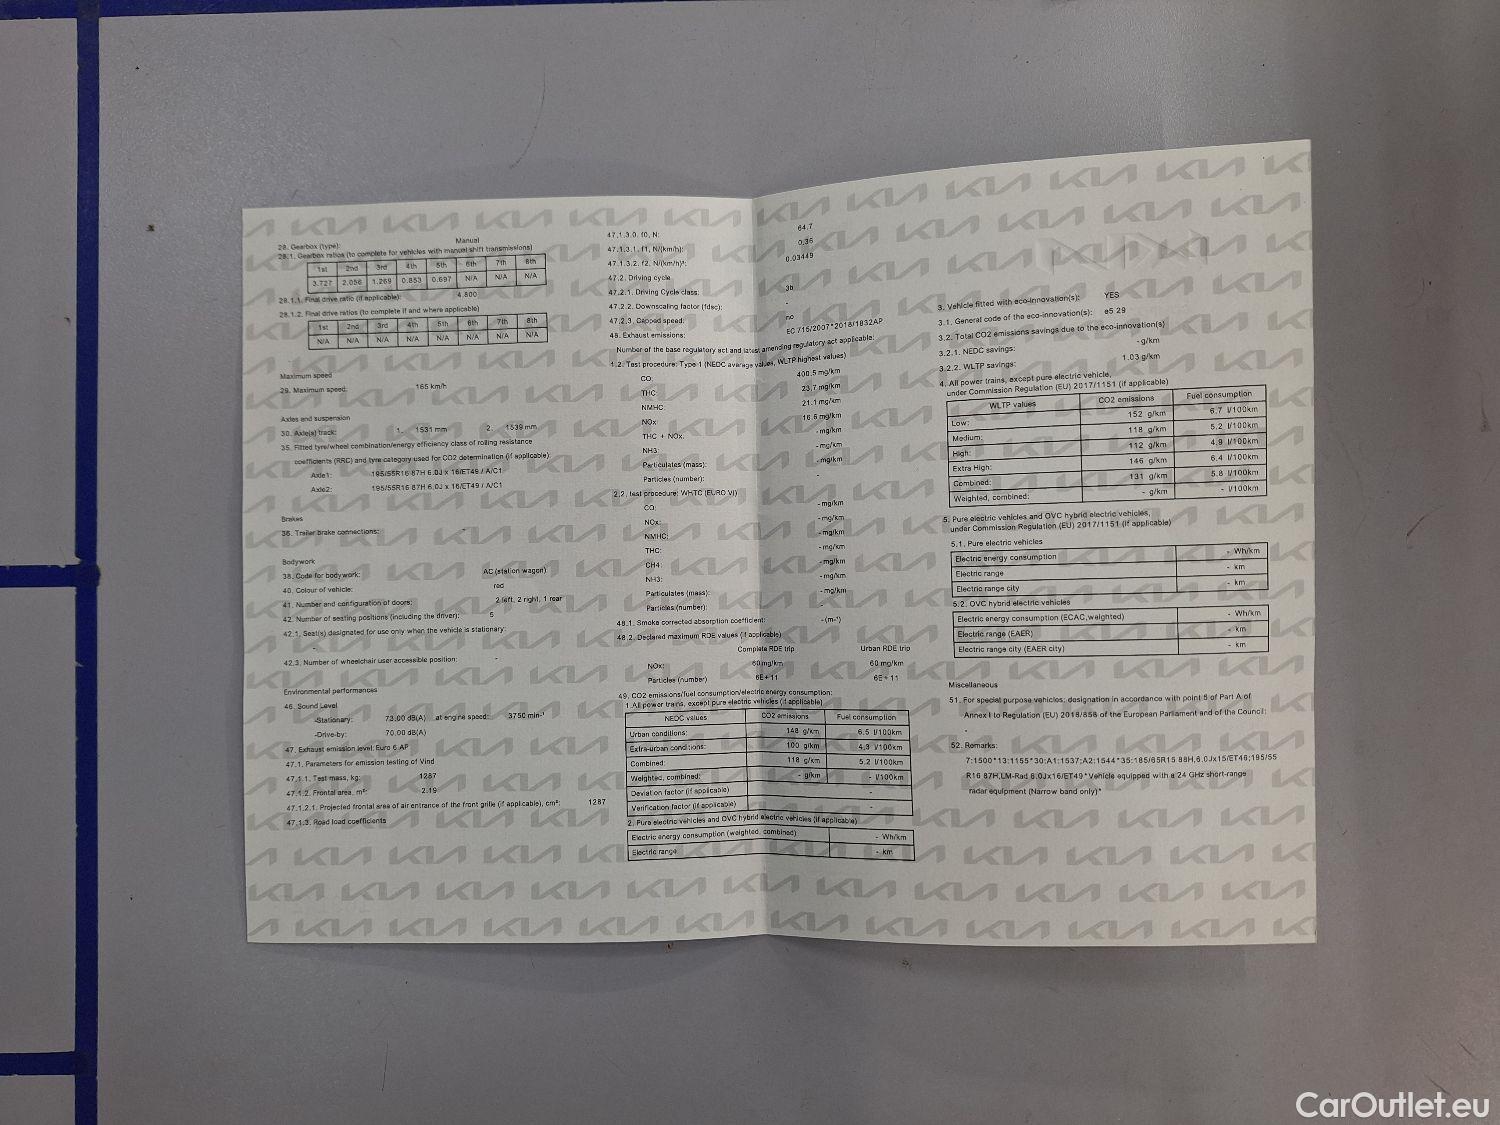 28. Gearbox (type): Manual
28.1. Gearbox ratios (to complete for vehicles with manual shift transmissions)
1st 2nd 3rd 4th 5th 6th 7th 8th
3.727 2.056 1.269 0.853 0.697 N/A N/A N/A
28.1.1. Final drive ratio (if applicable): 4.800
28.1.2. Final drive ratios (to complete if and where applicable)
1st 2nd 3rd 4th 5th 6th 7th 8th
N/A N/A N/A N/A N/A N/A N/A N/A
Maximum speed
29. Maximum speed: 165 km/h
Axles and suspension
30. Axle(s) track: 1. 1531 mm 2. 1539 mm
35. Fitted tyre/wheel combination/energy efficiency class of rolling resistance
coefficients (RRC) and tyre category used for CO2 determination (if applicable):
Axle1: 195/55R16 87H 6.0J x 16/ET49 / A/C1
Axle2: 195/55R16 87H 6.0J x 16/ET49 / A/C1
Brakes
36. Trailer brake connections: -
Bodywork
38. Code for bodywork: AC (station wagon)
40. Colour of vehicle: red
41. Number and configuration of doors: 2 left, 2 right, 1 rear
42. Number of seating positions (including the driver): 5
42.1. Seat(s) designated for use only when the vehicle is stationary:
-
42.3. Number of wheelchair user accessible position: -
Environmental performances
46. Sound Level
-Stationary: 73.00 dB(A) at engine speed: 3750 min⁻¹
-Drive-by: 70.00 dB(A)
47. Exhaust emission level: Euro 6 AP
47.1. Parameters for emission testing of Vind
47.1.1. Test mass, kg: 1287
47.1.2. Frontal area, m²: 2.19
47.1.2.1. Projected frontal area of air entrance of the front grille (if applicable), cm²: 1287
47.1.3. Road load coefficients
47.1.3.0. f0, N: 64.7
47.1.3.1. f1, N/(km/h): 0.36
47.1.3.2. f2, N/(km/h)²: 0.03449
47.2. Driving cycle
47.2.1. Driving Cycle class: 3b
47.2.2. Downscaling factor (fdsc): -
47.2.3. Capped speed: no
48. Exhaust emissions: EC 715/2007*2018/1832AP
Number of the base regulatory act and latest amending regulatory act applicable:
1.2. Test procedure: Type 1 (NEDC average values, WLTP highest values)
CO: 400.5 mg/km
THC: 23.7 mg/km
NMHC: 21.1 mg/km
NOx: 16.6 mg/km
THC + NOx: - mg/km
NH3: - mg/km
Particulates (mass): - mg/km
Particles (number): -
2.2. test procedure: WHTC (EURO VI)
CO: - mg/km
NOx: - mg/km
NMHC: - mg/km
THC: - mg/km
CH4: - mg/km
NH3: - mg/km
Particulates (mass): - mg/km
Particles (number): -
48.1. Smoke corrected absorption coefficient: - (m⁻¹)
48.2. Declared maximum RDE values (if applicable)
Complete RDE trip Urban RDE trip
NOx: 60 mg/km 60 mg/km
Particles (number) 6E+11 6E+11
49. CO2 emissions/fuel consumption/electric energy consumption:
1.All power trains, except pure electric vehicles (if applicable)
NEDC values CO2 emissions Fuel consumption
Urban conditions: 148 g/km 6.5 l/100km
Extra-urban conditions: 100 g/km 4.3 l/100km
Combined: 118 g/km 5.2 l/100km
Weighted, combined: - g/km - l/100km
Deviation factor (if applicable) -
Verification factor (if applicable) -
2. Pure electric vehicles and OVC hybrid electric vehicles (if applicable)
Electric energy consumption (weighted, combined) - Wh/km
Electric range - km
3. Vehicle fitted with eco-innovation(s): YES
3.1. General code of the eco-innovation(s): e5 29
3.2. Total CO2 emissions savings due to the eco-innovation(s)
3.2.1. NEDC savings: - g/km
3.2.2. WLTP savings: 1.03 g/km
4. All power trains, except pure electric vehicle,
under Commission Regulation (EU) 2017/1151 (if applicable)
WLTP values CO2 emissions Fuel consumption
Low: 152 g/km 6.7 l/100km
Medium: 118 g/km 5.2 l/100km
High: 112 g/km 4.9 l/100km
Extra High: 146 g/km 6.4 l/100km
Combined: 131 g/km 5.8 l/100km
Weighted, combined: - g/km - l/100km
5. Pure electric vehicles and OVC hybrid electric vehicles,
under Commission Regulation (EU) 2017/1151 (if applicable)
5.1. Pure electric vehicles
Electric energy consumption - Wh/km
Electric range - km
Electric range city - km
5.2. OVC hybrid electric vehicles
Electric energy consumption (ECAC,weighted) - Wh/km
Electric range (EAER) - km
Electric range city (EAER city) - km
Miscellaneous
51. For special purpose vehicles: designation in accordance with point 5 of Part A of
Annex I to Regulation (EU) 2018/858 of the European Parliament and of the Council:
-
52. Remarks:
7:1500*13:1155*30:A1:1537;A2:1544*35:185/65R15 88H,6.0Jx15/ET46;195/55
R16 87H,LM-Rad 6.0Jx16/ET49*Vehicle equipped with a 24 GHz short-range
radar equipment (Narrow band only)*
CarOutlet.eu